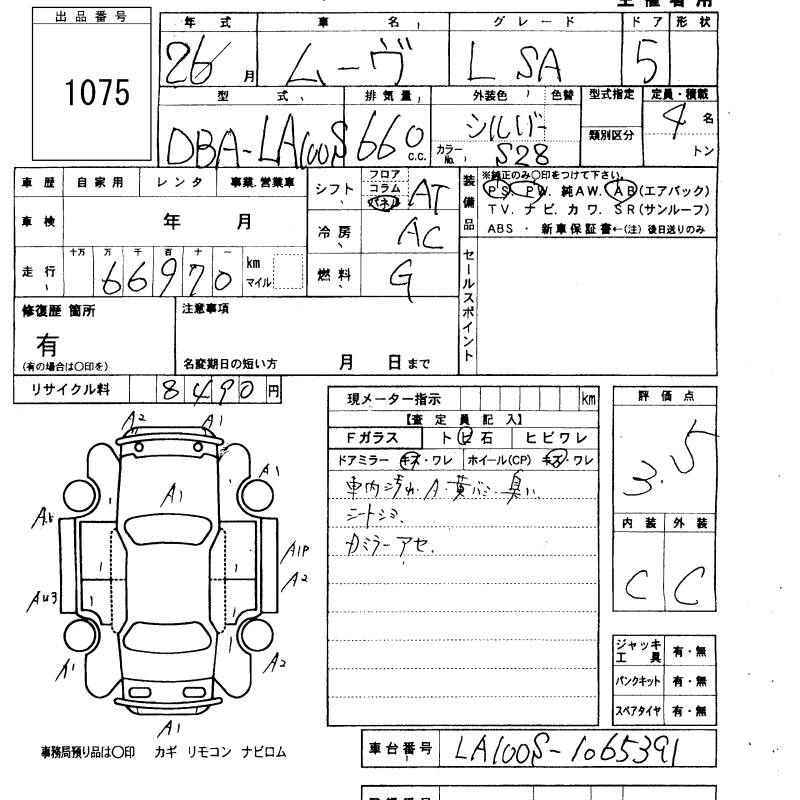 出品番号
1075
年式 車名 グレード ドア 形状
26 月 ムーヴ L SA 5
型式 排気量 外装色 色替 型式指定 定員・積載
DBA-LA100S 660 c.c. シルバー カラーNo. S28 類別区分 4 名 トン
車歴 自家用 レンタ 事業.営業車
シフト フロア コラム パネル AT
車検 年 月
冷房 AC
走行 十万 万 千 百 十 一
66970 km マイル
燃料 G
装備品
※純正のみ○印をつけて下さい。
PS. PW. 純AW. AB(エアバック)
TV. ナビ. カワ. SR(サンルーフ)
ABS ・ 新車保証書←(注) 後日送りのみ
セールスポイント
修復歴 箇所
有
(有の場合は○印を)
注意事項
名変期日の短い方 月 日まで
リサイクル料 8490 円
現メーター指示 km
【査定員記入】
Fガラス トビ石 ヒビワレ
ドアミラー キズ・ワレ ホイール(CP) キズ・ワレ
車内汚れ・A・黄バミ 臭い
シートシミ.
カミラーアセ.
評価点
3.5
内装 外装
C C
ジャッキ工具 有・無
パンクキット 有・無
スペアタイヤ 有・無
A2 A1
A1 A1
A1P
A2
AU3
A1 A2
A1
事務局預り品は○印 カギ リモコン ナビロム
車台番号 LA100S-1065391